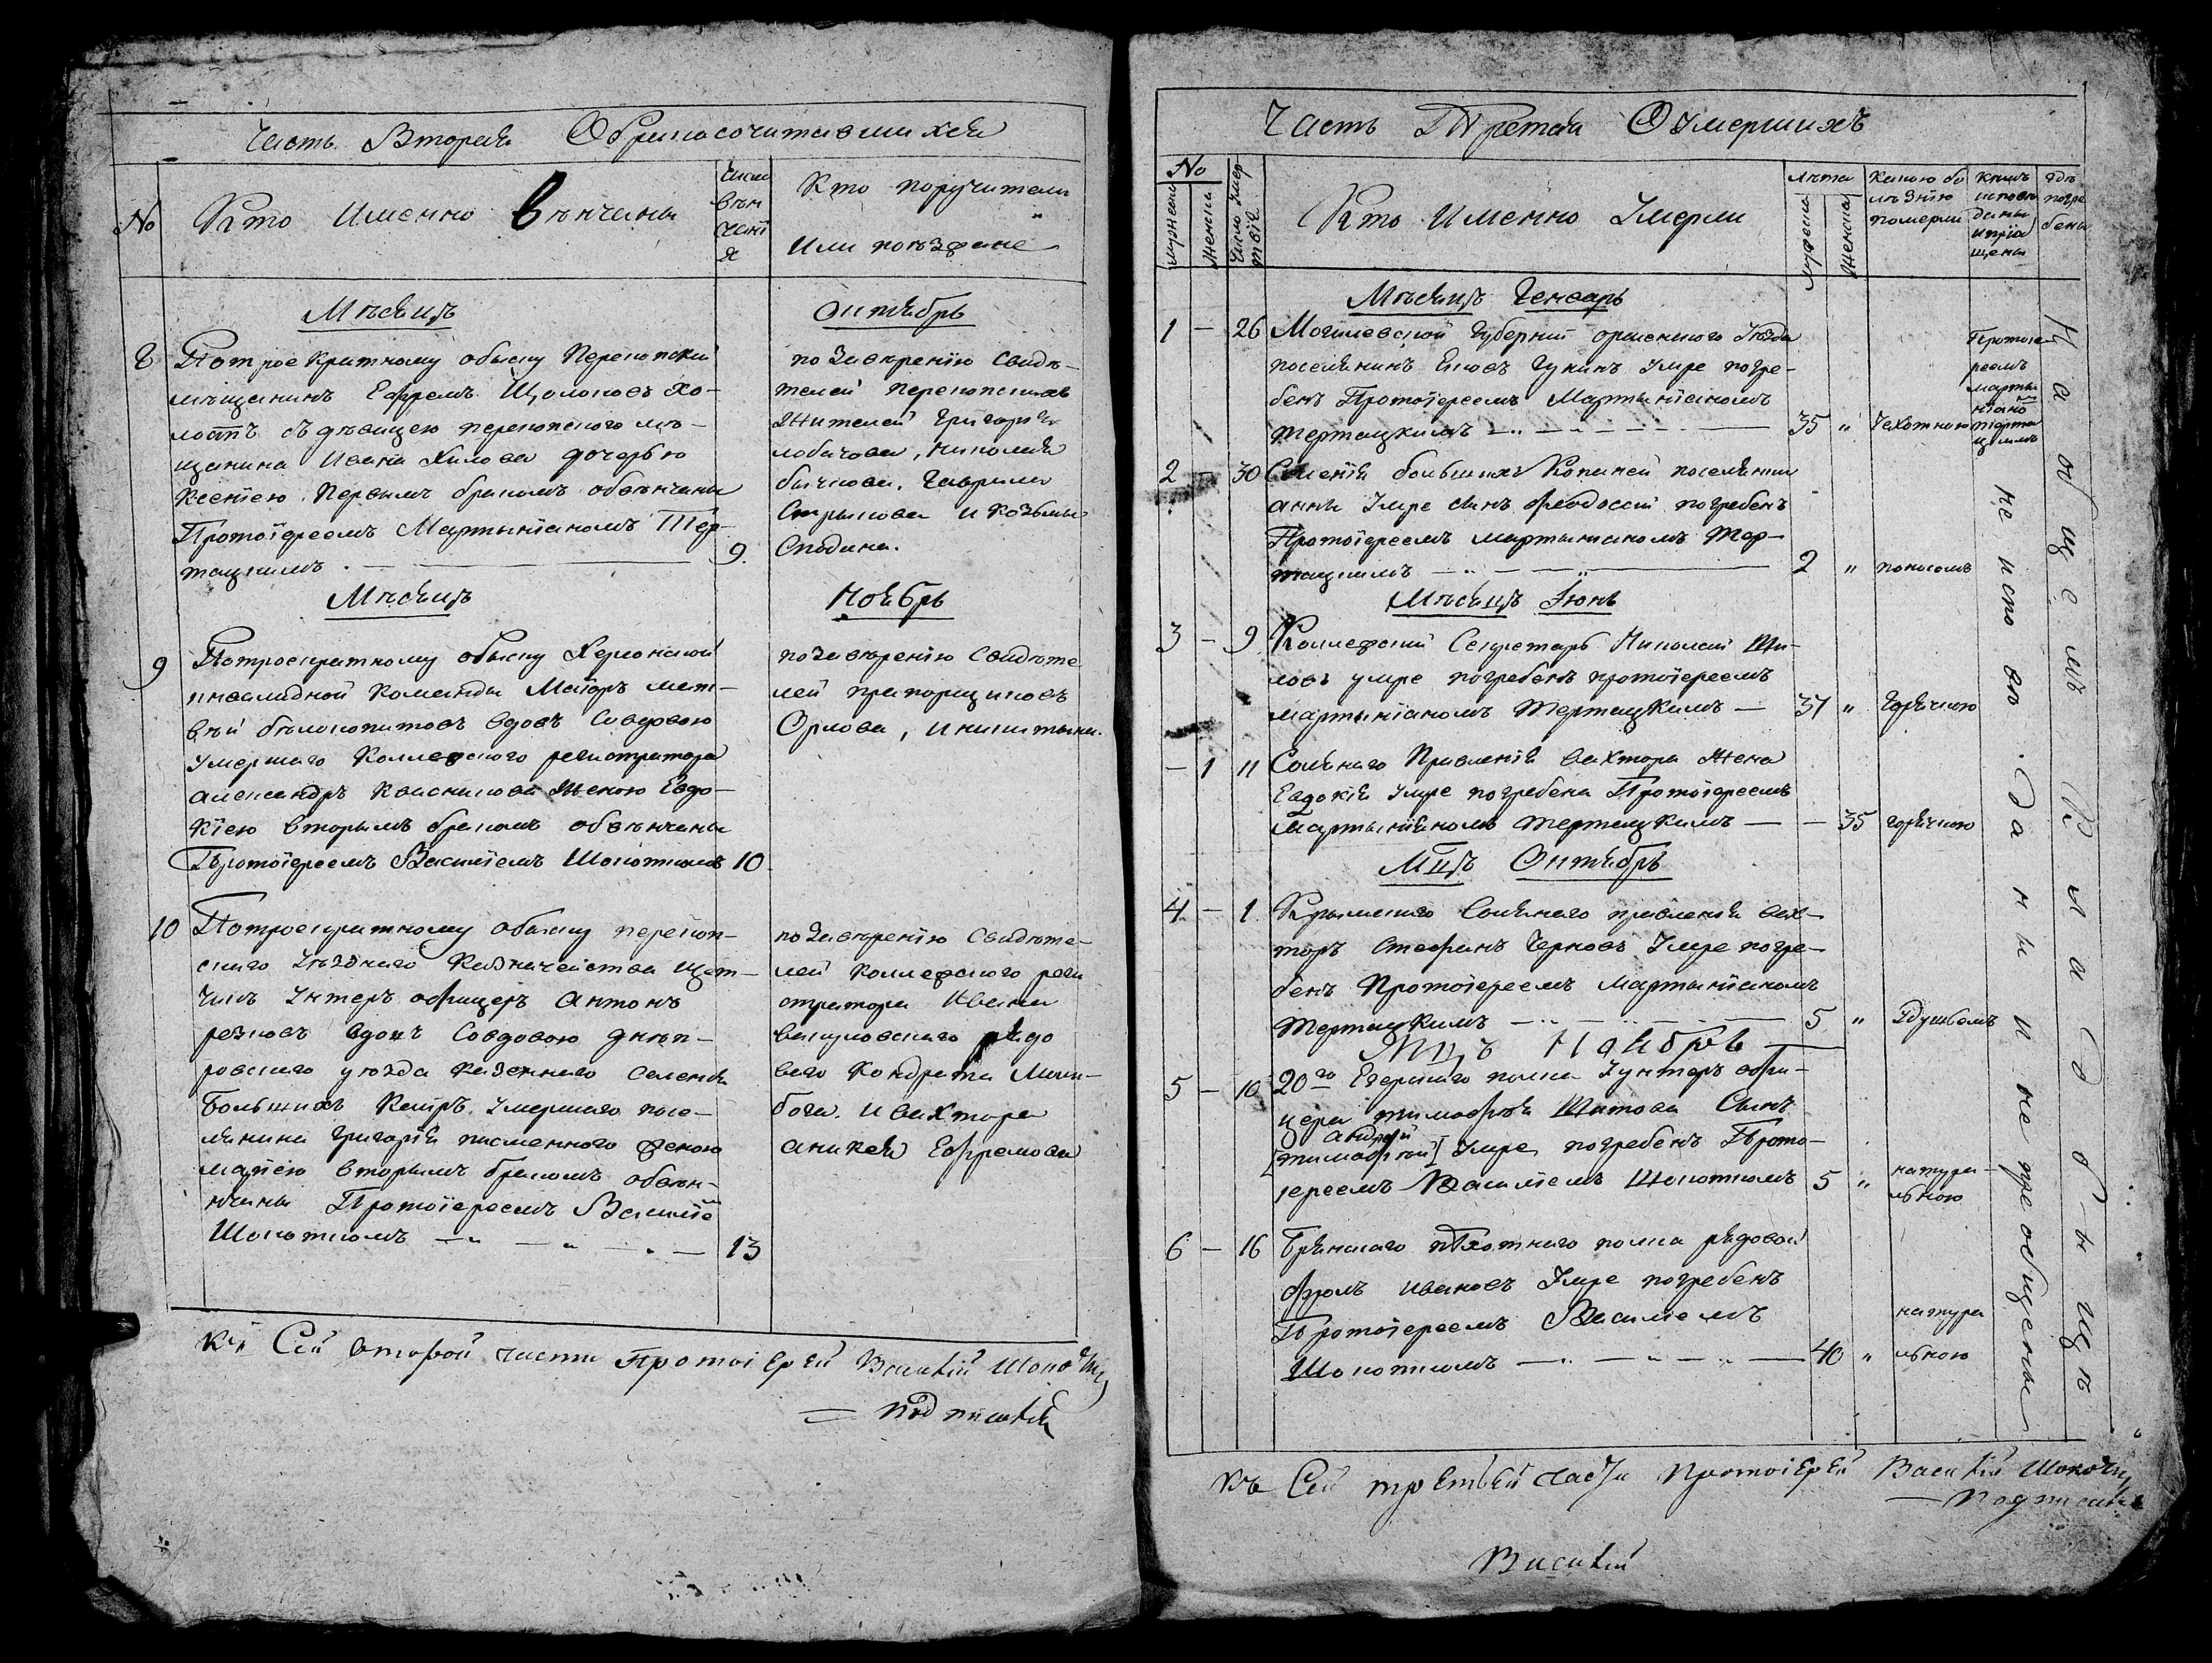 Часть Вторая О бракосочитавшихся
№
Кто Именно Вѣнчаны
число
вѣн
чанї
я
Кто поручители
Или поѣзжане
Мѣсяцъ Октябрь
8
Потроекратному обыску Перекопский
мѣщанинъ Ефремъ Хо-
лостъ съ дѣвицею перекопского мѣ-
щанина Ивана Хилова дочерью
Ксенїею Первымъ бракомъ обвѣнчаны
Протоїереемъ Мартынїаномъ Тер-
тацкимъ
9.
по завѣренїю Свидѣ-
телей перекопскихъ
Жителей Григорїя
лобачова, николая
бычкова, Гаврила
Стрыкова и Козьмы
Сподина.
Мѣсяцъ Ноябрь
9
Потроекратному обыску Херсонской
инвалидной Команды Маїоръ мат-
вѣй бѣлокопитовъ вдовъ Совдовою
Умершаго Коллежского регистратора
александръ Квасникова Женою Евдо-
кїею вторымъ бракомъ обвѣнчаны
Протоїереемъ Василїемъ Шокоткомъ
10
по завѣренїю Свидѣте
лей прапорщиковъ
Орлова, иникитина.
10
Потроекратному обыску перекоп-
скаго Уѣзднаго Казначейства щет-
чикъ Унтеръ офицеръ Антонъ
резновъ вдовъ Совдовою днѣп-
ровскаго уѣзда Казеннаго Селенїя
Большихъ Каиръ Умершаго посе-
лянина Григорїя писменного женою
марїею вторымъ бракомъ обвѣн-
нчаны Протоїереемъ Василїе
Шокоткомъ
13
по завѣренїю Свидѣте-
лей коллежского реги
стратора Ивана
вакуловскаго рядо
ваго Кондрата
бога. Ивахтера
аникея Ефремова
Къ Сей второй части Протоїерей Василїй Шокотко
подписался
Часть Третая О Умершихъ
№
мужеска
Женска
Число Умер
твїя
Кто Именно Умерли
лѣта
мужеска
Женска
Какою бо
лѣзнїю
померли
Кѣмъ
исповѣ
даны
иприа
щены
гдѣ
погре
бены
Мѣсяцъ Генварь
1 - 26
Могилевской Губернїи оршанского Уѣзда
поселянинъ Яковъ Гукинъ Умре погре-
бенъ Протоїереемъ Мартынїаномъ
тертацкимъ
35 " Чахоткою
Протоїе
реемъ
марты
нїано
терта
цкимъ
2 - 30
Селенїя большихъ Копаней поселянки
анны Умре сынъ феодосий погребенъ
Протоїереемъ мартынїаномъ Тер-
тацкимъ
2 " поносомъ
Мѣсяцъ Іюнь
3 - 9
Коллежский Секретарь Николай
умре погребенъ протоїереемъ
мартынїаномъ тертацкимъ
37 " горячкою
- 1 11
Солянаго Правленїя вахтера Жена
Евдокїя Умре погребена Протоїереемъ
Мартынїаномъ тертацкимъ
- 35 горячкою
Мцъ Октябрь
4 - 1
Крымскаго Солянаго правленїя вах-
теръ Стефанъ Черновъ Умре погре-
бенъ Протоїереемъ Мартынїаномъ
тертацкимъ
5 " Удушьемъ
Мцъ Ноябрь
5 - 10
20го Егерскаго полка Унтеръ офи-
цера тимофея Шитова Сынъ
андрей
[тимофей] Умре погребенъ Прото-
їереемъ Василїемъ Шокоткомъ
5 " натура-
льною
6 - 16
Брянскаго пѣхотнаго полка рядовой
фролъ ивановъ Умре погребенъ
Протоїереемъ Василїемъ
Шокоткомъ
40 " натура
льною
не исповѣданы и не преобщены
На общемъ Кладбищѣ
Къ Сей третьей части Протоїерей Василїй Шокотко
Подписался
Василїй